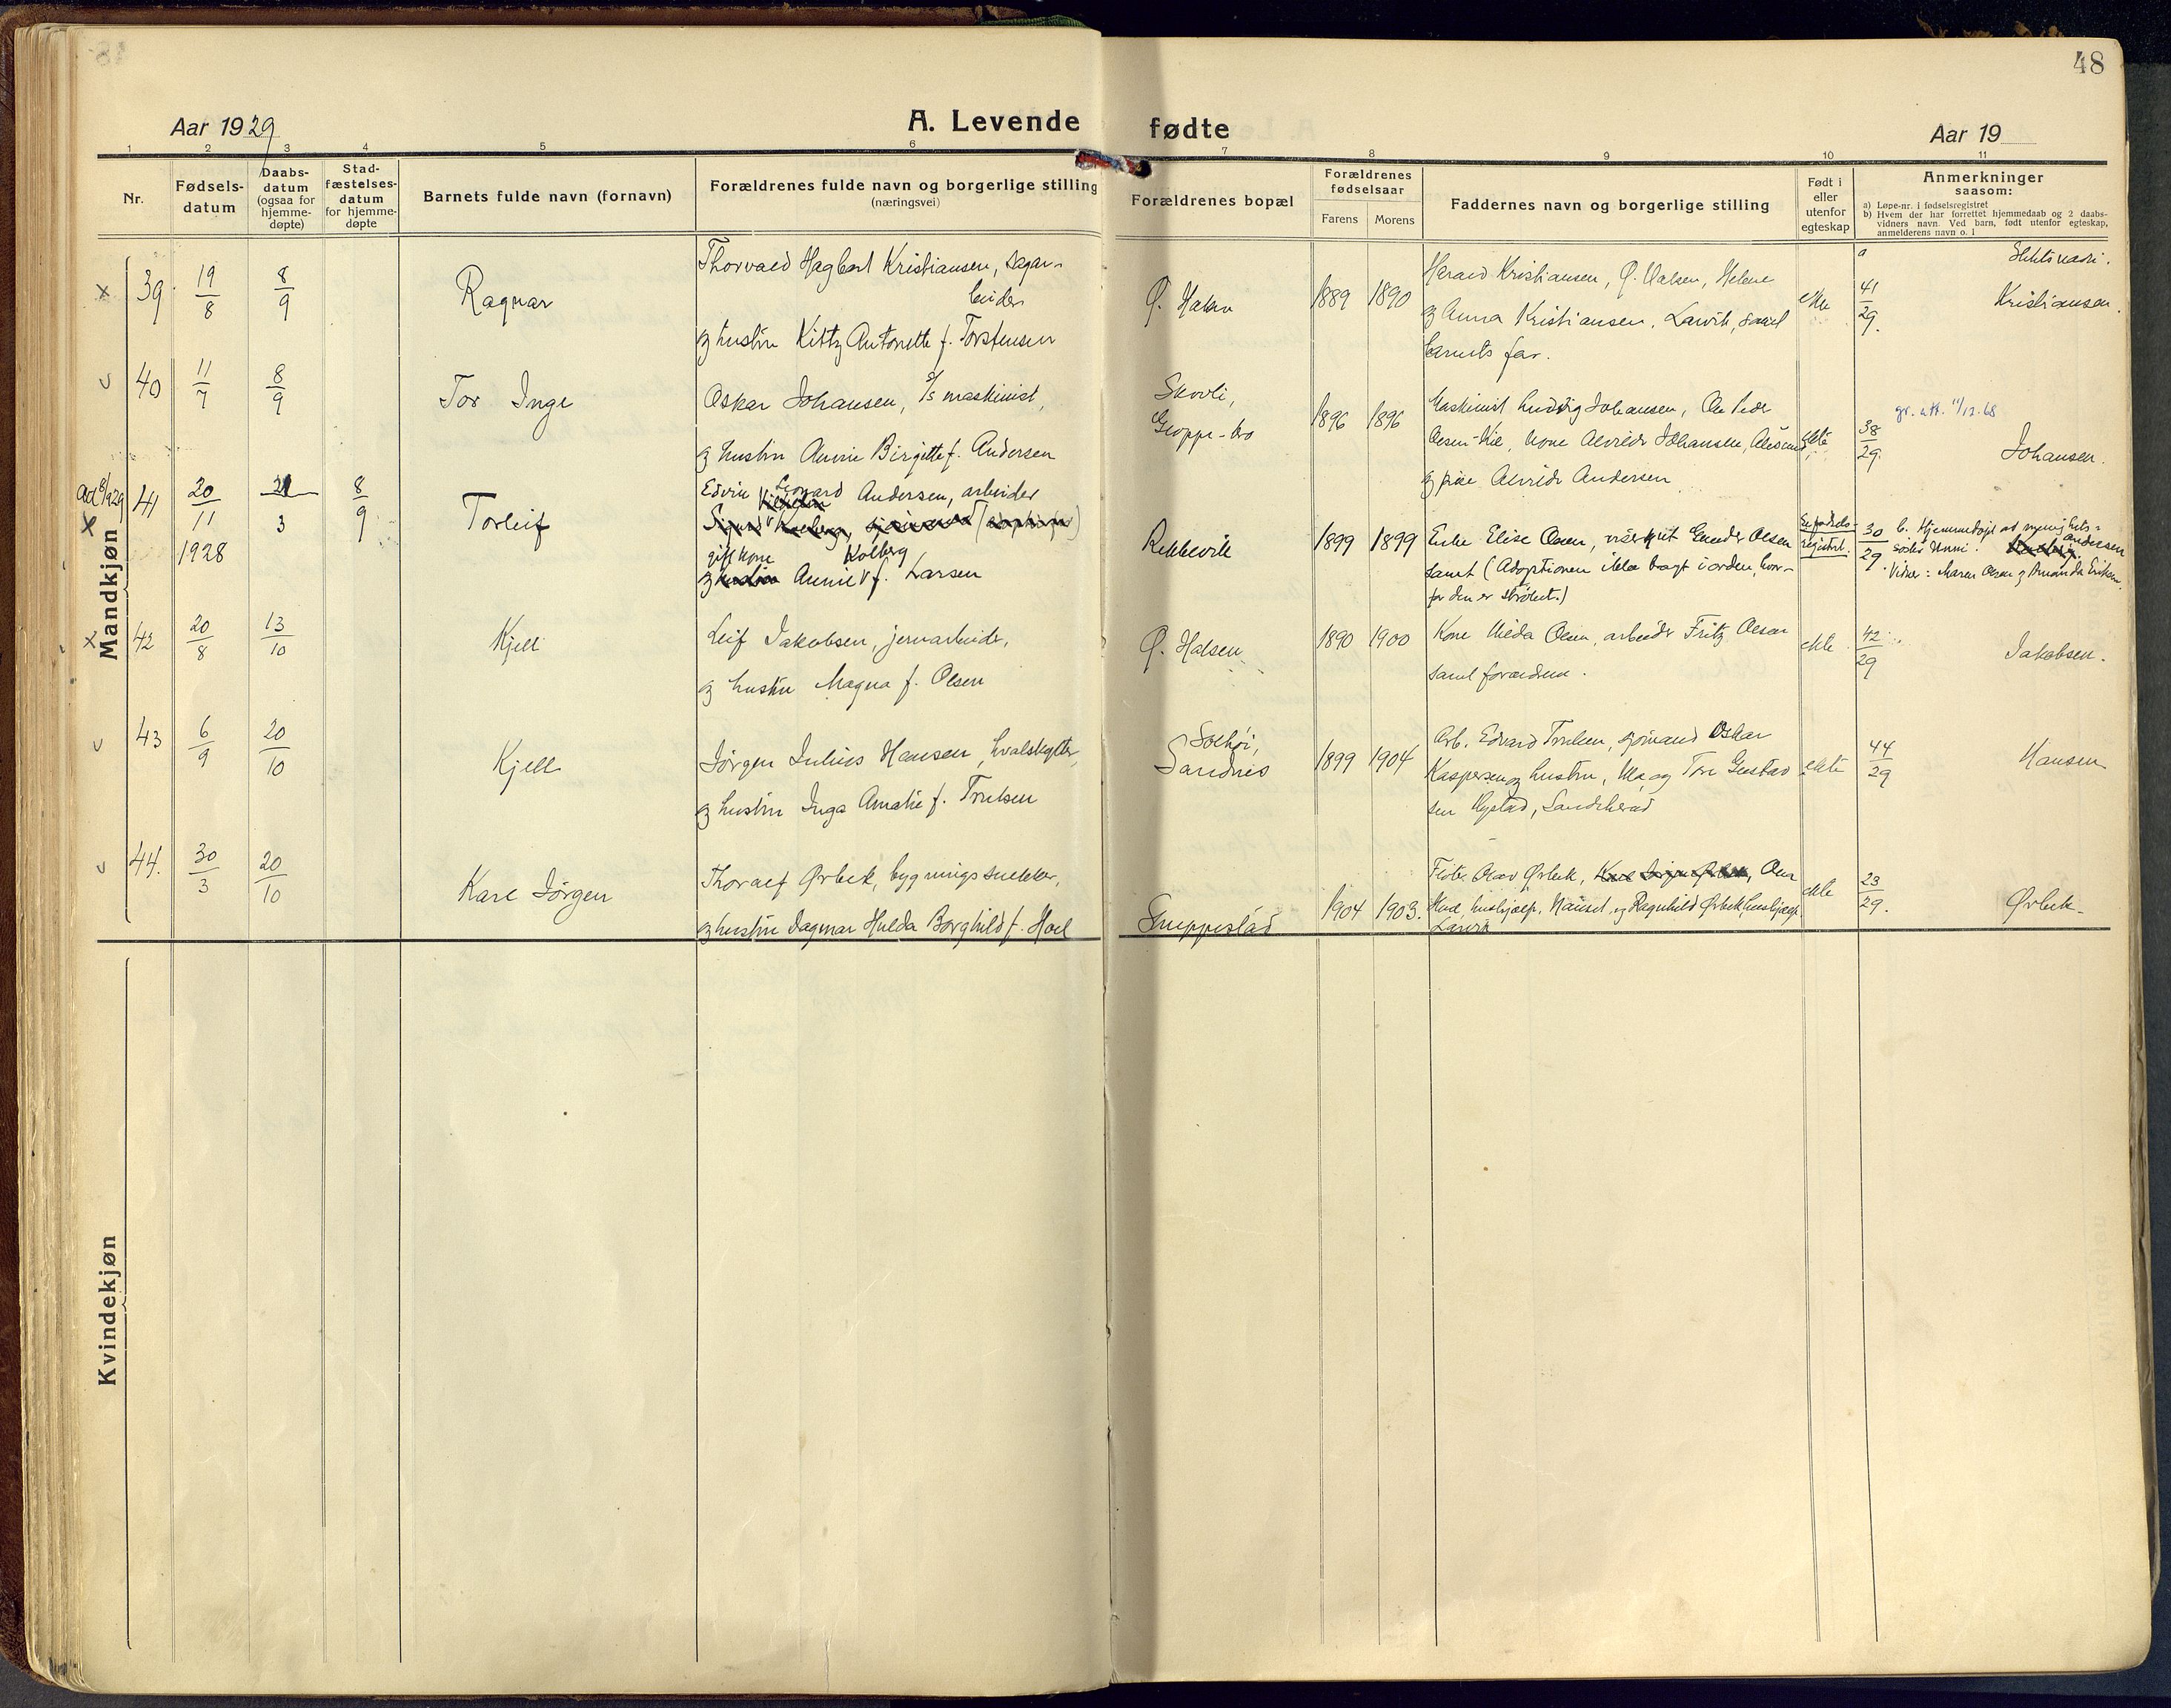 48
Aar 1929
A. Levende fødte
Aar 19
1 2 3 4 5 6 7 8 9 10 11
Nr.
Fødsels-
datum
Daabs-
datum
(ogsaa for
hjemme-
døpte)
Stad-
fæstelses-
datum
for hjemme-
døpte
Barnets fulde navn (fornavn)
Forældrenes fulde navn og borgerlige stilling
(næringsvei)
Forældrenes bopæl
Forældrenes
fødselsaar
Farens Morens
Faddernes navn og borgerlige stilling
Født i
eller
utenfor
egteskap
Anmerkninger
saasom:
a) Løpe-nr. i fødselsregistret
b) Hvem der har forrettet hjemmedaab og 2 daabs-
vidners navn. Ved barn, født utenfor egteskap,
anmelderens navn o. l
Mandkjøn
x 39 19/8 8/9
Ragnar
Thorvald Hagbart Kristiansen, sagar-
beider
og hustru Kitty Antonette f. Torstensen
Ø. Halsen
1889 1890
Harald Kristiansen, Ø. Halsen, Helene
og Anna Kristiansen, Larvik, samt
barnets far.
ekte
a
41/29.
Slektsnavn.
Kristiansen.
v 40 11/7 8/9
Tor Inge
Oskar Johansen, d/s maskinist,
og hustru Annie Birgitte f. Andersen
Skovli,
Gloppe-bro
1896 1896
Maskinist Ludvig Johansen, Ole Peder
Olsen, kone Alvilde Johansen,
og pike Alvilde Andersen
ekte
38/29.
11/12.68
Johansen.
x 41 20/11 1928 21/3 8/9
Torleif
Edvin Leonard Andersen, arbeider
gift kone Kolberg
og Annie f. Larsen
Rekkevik
1899 1899
Enke Elise Olsen, Gunder Olsen
samt (Adoptionen ikke bragt i orden, hvor-
for den er strøket.)
Se fødsels-
registret.
30/29.
b. Hjemmedøpt av menighets-
søster Unni. Andersen
Vidner: Maren Olsen og Amanda Eriksen.
x 42 20/8 13/10
Kjell
Leif Jakobsen, jernarbeider,
og hustru Magna f. Olsen
Ø. Halsen
1890 1900
Kone Hilda Olsen, arbeider Fritz Olsen
samt forældrene.
ekte
42/29
Jakobsen.
v 43 6/9 20/10
Kjell
Jørgen Julius Hansen, hvalskytter,
og hustru Inga Amalie f. Trulsen
Solhøi,
Sandnes
1899 1904
Arb. Edvard Trulsen, sjømand Oskar
Kaspersen og hustru, og Tore Gustav
sen Nystad, Sandeherad
ekte
44/29
Hansen
v 44. 30/3 20/10
Karl Jørgen
Thoralf Ørbek, bygningssnekker,
og hustru Dagmar Hulda Borghild f. Hoel
Gruppestad
1904 1903.
Olav Ørbek,
hushjælp, og Ragnhild Ørbek, hushjælp,
Larvik
ekte
23/29.
Ørbek.
Kvindekjøn